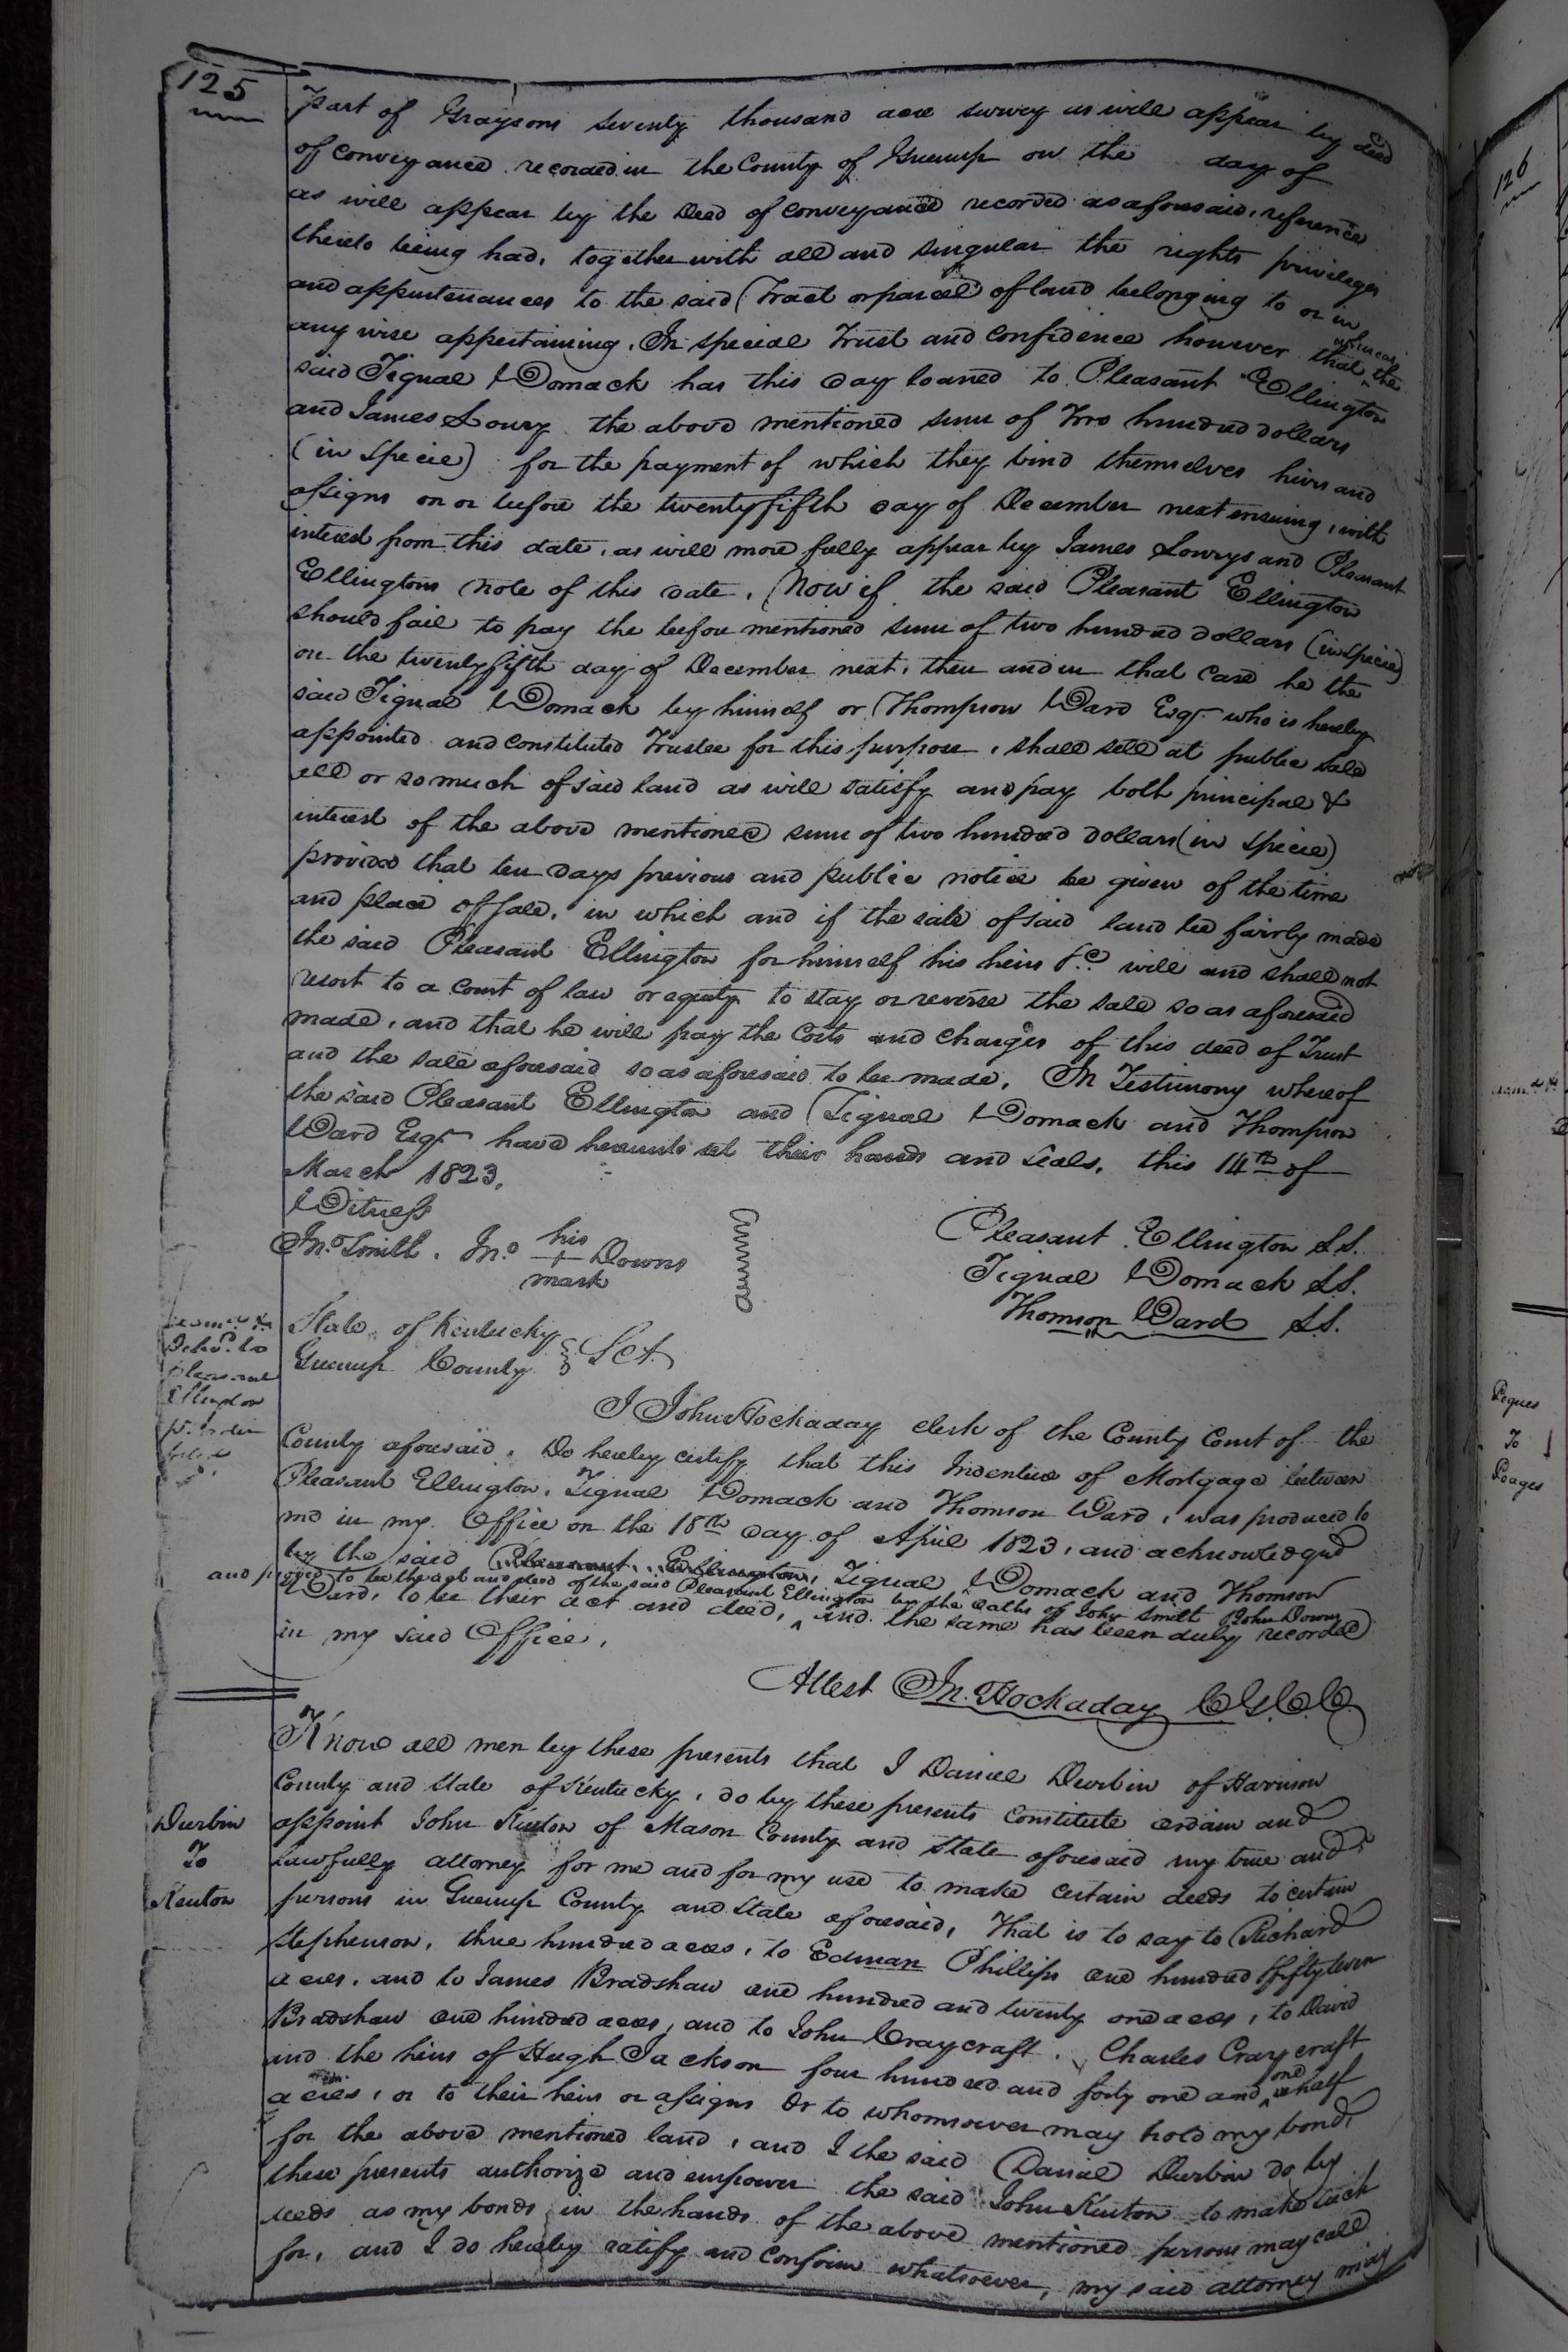 125
Part of Graysons seventy thousand acre survey as will appear by deed
of conveyance recorded in the County of Greenup on the day of
as will appear by the Deed of conveyance recorded as aforesaid, reference
thereto being had, together with all and singular the rights privileges
and appurtenances to the said Tract or parcel of land belonging to or in
any wise appertaining. In special Trust and confidence however that whereas the
said Tignal Womack has this day loaned to Pleasant Ellington
and James Lowry the above mentioned sum of Two hundred dollars
(in specie) for the payment of which they bind themselves heirs and
assigns on or before the twenty fifth day of December next ensuing, with
interest from this date, as will more fully appear by James Lowrys and Pleasant
Ellingtons note of this date. Now if the said Pleasant Ellington
should fail to pay the before mentioned sum of two hundred dollars (in specie)
on the twenty fifth day of December next, then and in that case he the
said Tignal Womack by himself or Thompson Ward Esqr. who is hereby
appointed and constituted Trustee for this purpose, shall sell at public sale
all or so much of said land as will satisfy and pay both principal &
interest of the above mentioned sum of two hundred dollars (in specie)
provided that ten days previous and public notice be given of the time
and place of sale, in which and if the sale of said land be fairly made
the said Pleasant Ellington for himself his heirs &c. will and shall not
resort to a court of law or equity to stay or reverse the sale so as aforesaid
made, and that he will pay the Costs and Charges of this deed of Trust
and the sale aforesaid so as aforesaid to be made. In Testimony whereof
the said Pleasant Ellington and Tignal Womack and Thompson
Ward Esqr. have hereunto set their hands and seals, this 14th of
March 1823.
Witness
Jno. Smith. Jno. his + mark Downs
Pleasant Ellington L.S.
Tignal Womack L.S.
Thomson Ward L.S.
State of Kentucky
Greenup County Sct.
Pleasant
Ellington
I John Hockaday clerk of the County Court of the
County aforesaid, Do hereby certify that this Indenture of Mortgage between
Pleasant Ellington, Tignal Womack and Thomson Ward, was produced to
me in my Office on the 18th day of April 1823, and acknowledged
by the said Pleasant Ellington, Tignal Womack and Thomson
and proved to be the act and deed of the said Pleasant Ellington by the oaths of John Smith & John Downs
Ward, to be their act and deed, ^ and the same has been duly recorded
in my said Office.
Attest Jn. Hockaday C.G.C.C.
Durbin
To
Kenton
Know all men by these presents that I Daniel Durbin of Harrison
County and State of Kentucky, do by these presents Constitute ordain and
appoint John Kenton of Mason County and State aforesaid my true and
lawfully attorney for me and for my use to make certain deeds to certain
persons in Greenup County and State aforesaid, That is to say to Richard
Stephenson, three hundred acres, to Edman Phillips one hundred & fifty seven
acres, and to James Bradshaw one hundred and twenty one acres, to David
Bradshaw one hundred acres, and to John Craycraft, Charles Craycraft
and the heirs of Hugh Jackson four hundred and forty one and one half
acres, or to their heirs or assigns Or to whomsoever may hold my bonds
for the above mentioned land, and I the said Daniel Durbin do by
these presents authorize and empower the said John Kenton to make such
deeds as my bonds in the hands of the above mentioned persons may call
for, and I do hereby ratify and confirm whatsoever, my said attorney may
126
Pogues
To
Poages